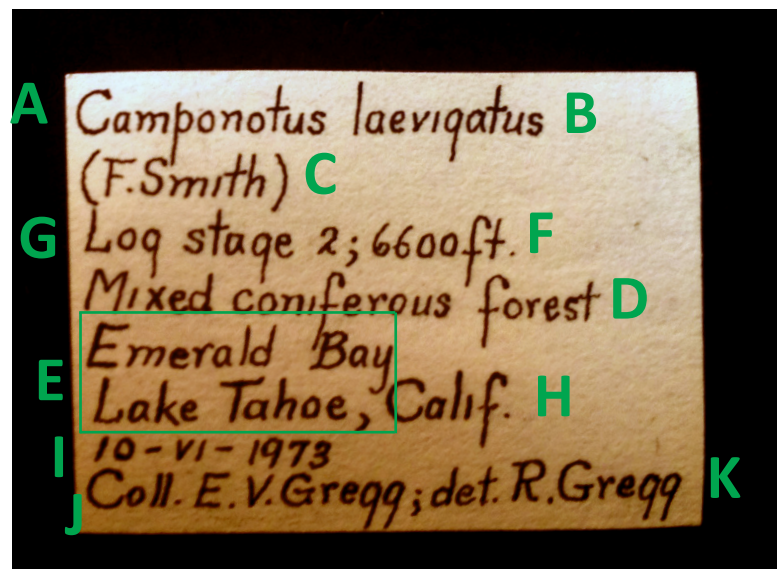 A Camponotus laevigatus B
(F.Smith) C
G Log stage 2; 6600ft. F
Mixed coniferous forest D
Emerald Bay
E Lake Tahoe, Calif. H
I 10-VI-1973
J Coll. E.V.Gregg; det. R.Gregg K